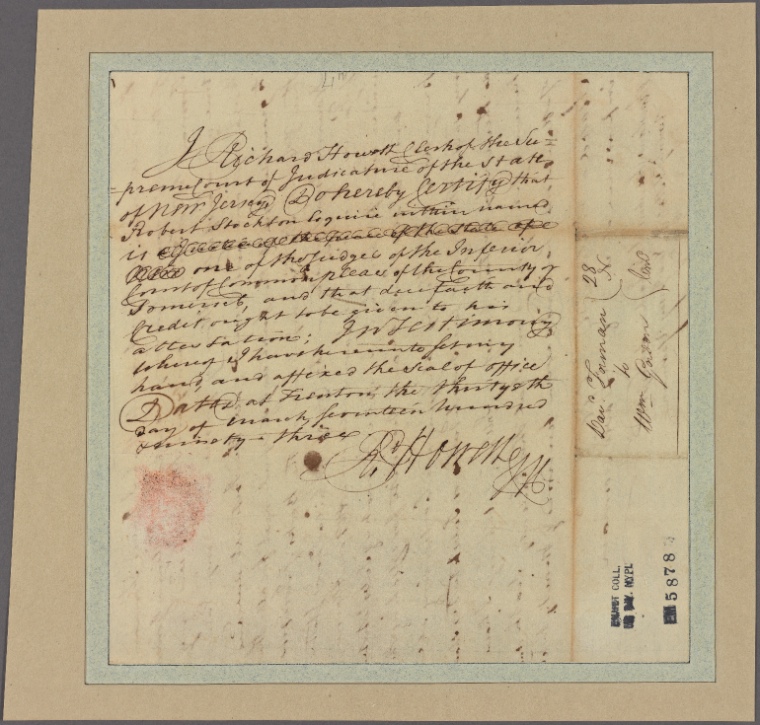 I Richard Howell Clerk of the Su=
=preme Court of Judicature of the State
of New Jersey Do hereby Certify that
Robert Stockton Esquire within named
is of the peace of the State of
one of the Judges of the Inferior
Court of Common pleas of the County of
Somerset, and that due faith and
Credit ought to be given to his
attestation: In Testimony
whereof I have hereunto set my
hand and affixed the Seal of office
Dated at Trenton the thirtieth
day of March, seventeen hundred
& ninety-three
Rd Howell
Danl
to
Wm Green
28
EMMET COLL.
N.Y.P.L.
EM
5878